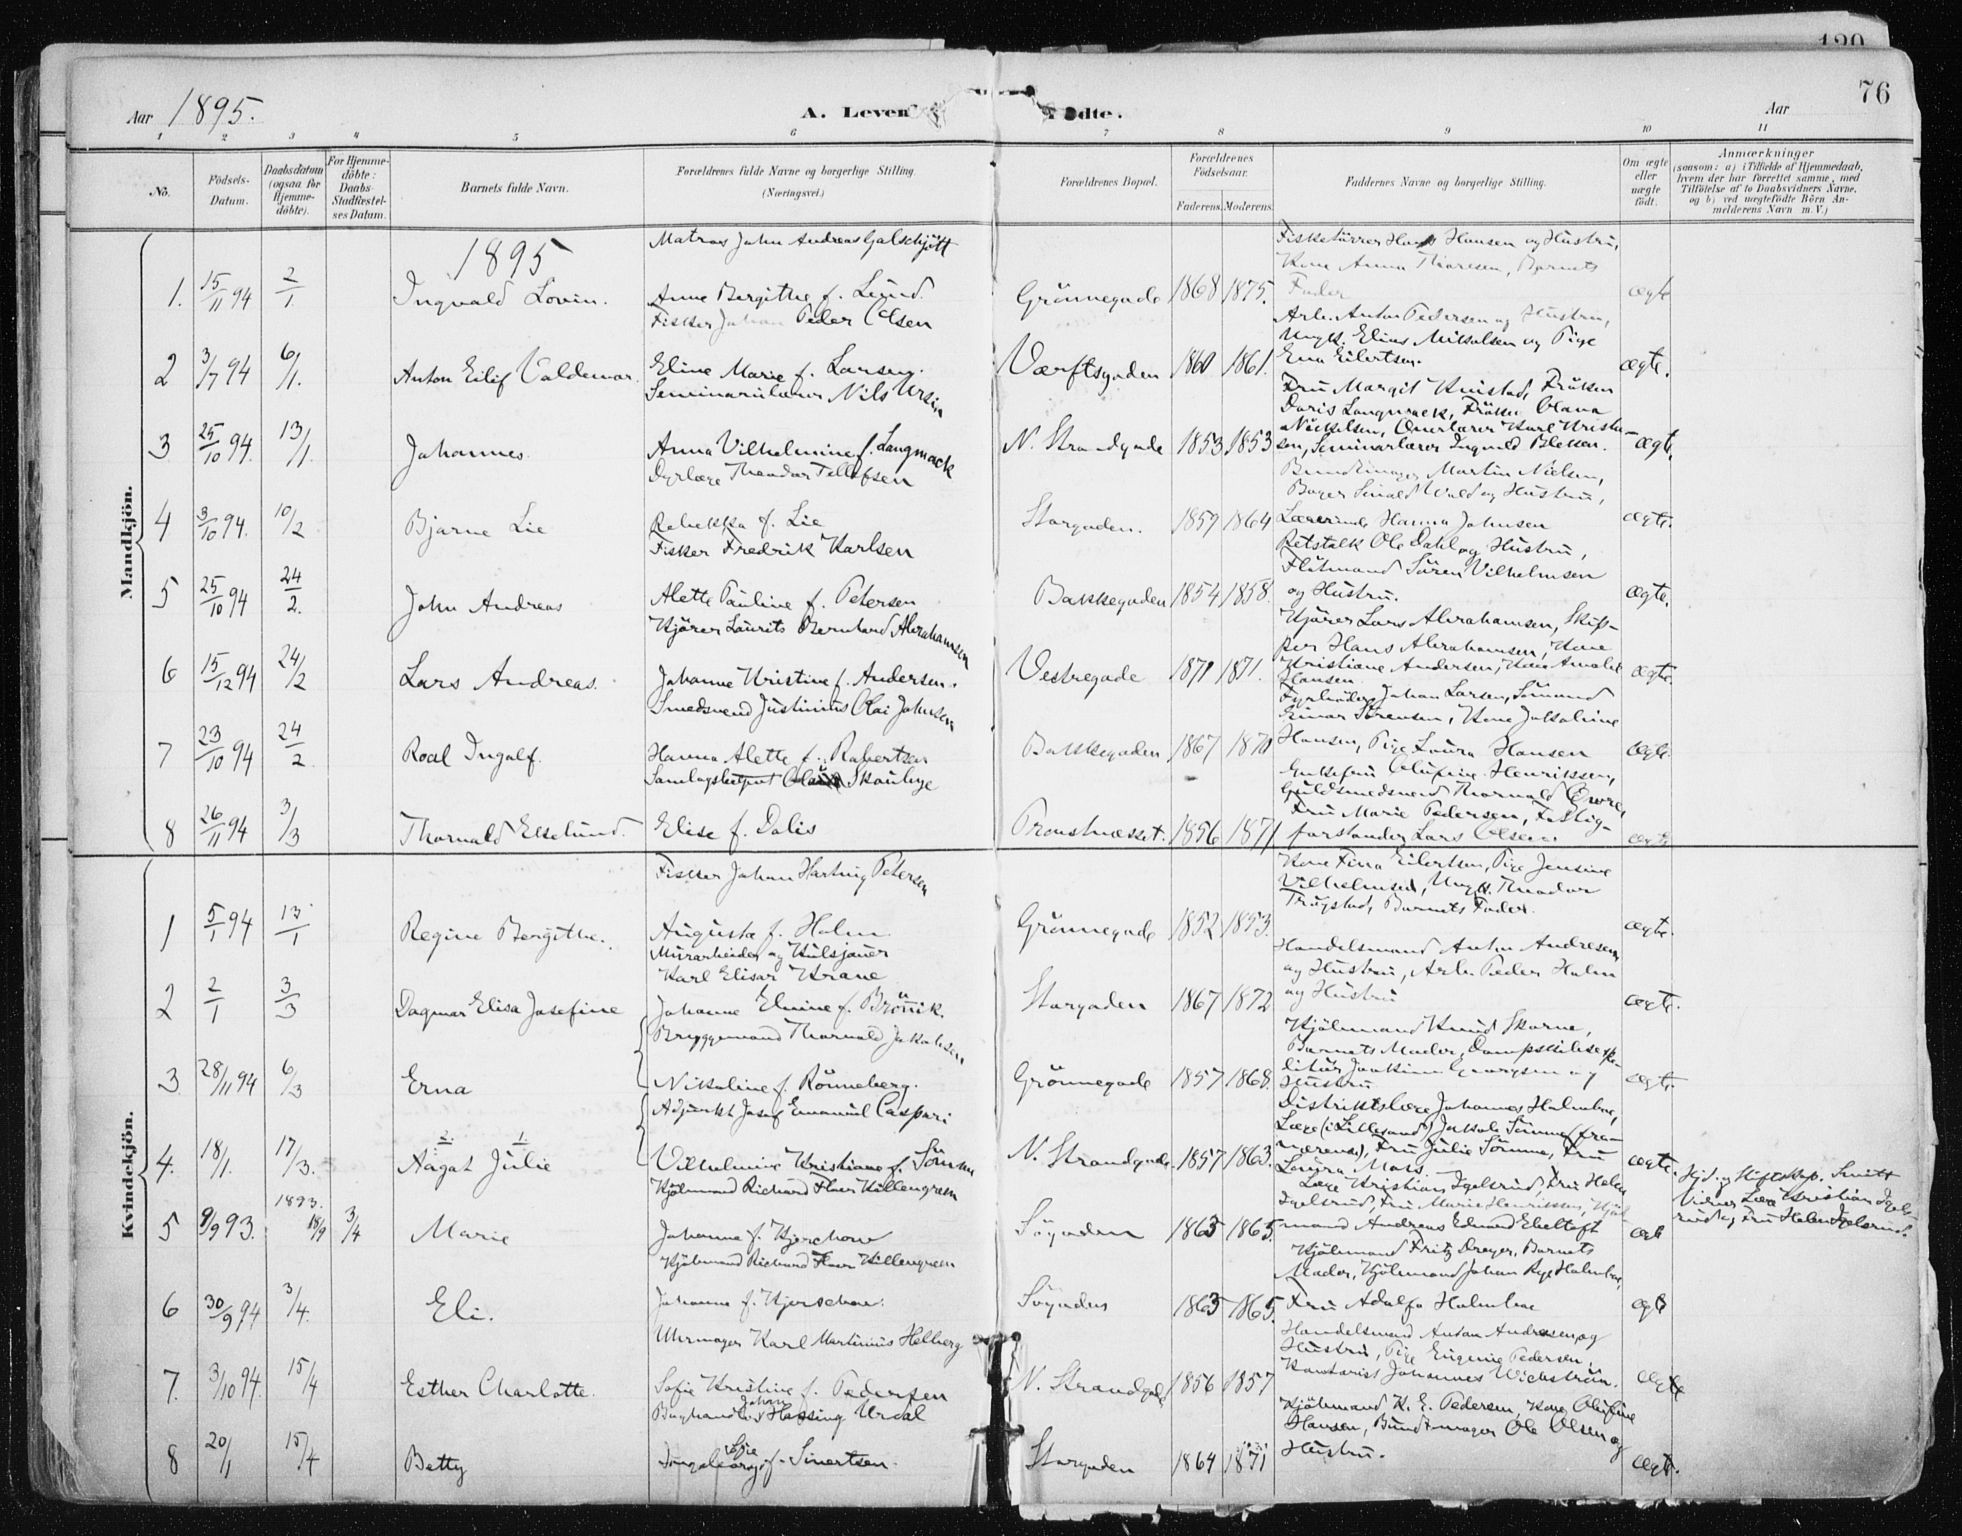 120
76
Aar 1895.
A. Leven
dte.
Aar
1 2 3 4 5 6 7 8 9 10 11
No.
Födsels-Datum.
Daabsdatum (ogsaa for Hjemme-döbte).
For Hjemme-döbte: Daabs-Stadfæstel-ses Datum.
Barnets fulde Navn.
Forældrenes fulde Navne og borgerlige Stilling. (Næringsvei.)
Forældrenes Bopæl.
Forældrenes Födselsaar.
Faderens. Moderens.
Faddernes Navne og borgerlige Stilling.
Om ægte eller uægte födt.
Anmærkninger
(saasom: a) i Tilfælde af Hjemmedaab, hvem der har forrettet samme, med Tilföielse af to Daabsvidners Navne, og b) ved uægtefödte Börn An-melderens Navn m. V.)
Mandkjön.
1895
Matros John Andreas Galschjött
Fisketörrer Hans Hansen og Hustru,
Kone Anna Thoresen, Barnets
1. 15/11 94 2/1 Ingvald Lovin. Anne Bergithe f. Lund. Grönnegade 1868 1875. Fader ægte
Fisker Johan Peder Olsen
Arb. Anton Pedersen og Hustru,
Ungk. Elias Mikalsen og Pige
2 3/7 94 6/1. Anton Eilif Valdemar. Eline Marie f. Larsen. Værftsgaden 1860 1861. Ena Eilertsen. ægte.
Seminarielærer Nils Ursin
Fru Margit Knistad, Fröken
Doris Langmack, Fröken Olava
3 25/10 94. 13/1. Johannes. Anna Vilhelmine f. Langmack N. Strandgade 1853 1853 ægte.
Dyrlæge Theodor Tellefsen
Bundtmager Martin Nielsen,
4 3/10 94. 10/2 Bjarne Lie Rebekka f. Lie Storgaden. 1857 1864 Lærerinde Hanna Johnsen ægte.
Fisker Fredrik Karlsen
Retstolk Ole Dahl og Hustru,
Flötmand Sören Vilhelmsen
5 25/10 94 24/2. John Andreas Alette Pauline f. Petersen Bakkegaden 1854 1858. og Hustru. ægte.
Kjörer Laurits Bernhard Abrahamsen
Kjörer Lars Abrahamsen, Skip-
per Hans Abrahamsen, Kone
6 15/12 94 24/2 Lars Andreas. Johanne Kristine f. Andersen. Vestregade 1871 1871. Kristiane Andersen, Kone Amalie ægte.
Hansen.
Smedsvend Justinius Olai Johnsen
Fyrböder Johan Larsen, Sömand
Einar Sörensen, Kone Jakobine
7 23/10 94 24/2 Roal Ingolf. Hanna Alette f. Robertsen Bakkegaden 1867 1870 Hansen, Pige Laura Hansen ægte.
Enkefru Olufine Henriksen,
Guldsmedsvend Thorvald
Fru Marie Pedersen, Fattig-
8 26/11 94 3/3 Thorvald Elselund. Elise f. Dalis Pronstnesset. 1856 1871 forstander Lars Olsen. ægte
Kvindekjön.
Fisker Johan Hartvig Petersen
Kone Fina Eilertsen, Pige Jensine
Vilhelmsen, Ungk. Theodor
Trygstad, Barnets Fader.
1 5/1 94 13/1 Regine Bergithe. Augusta f. Holm Grönnegade 1852 1853. ægte.
Murarbeider og Kulsjauer
Karl Elisar Krane
Handelsmand Anton Andresen
og Hustru, Arb. Peder Holm
og Hustru
2 2/1 3/3 Dagmar Elisa Josefine Johanne Elmine f. Brönik. Storgaden 1867 1872 ægte.
Bryggemand Thorvald Jakobsen
Kjöbmand Knud Skarve,
Barnets Moder, Dampskibsexpe-
ditör Joakim Georgsen og
3 28/11 94 6/3 Erna Nikoline f. Rönneberg. Grönnegade 1857 1868. Hustru ægte.
Adjunkt Josef Emanuel Caspari
Distriktslæge Johannes Holmboe,
Læge (i Lillesand) Jakob Sömme (fra-
værende), Fru Julie Sömme, Fru
4. 18/1. 17/3. 2. 1. Aagat Julie Vilhelmine Kristiane f. Sömme N. Strandgade. 1857 1863. Laura Mack. ægte.
Kjöbmand Richard Floer Killengreen
Læge Kristian Igelsrud, Fru Helen
Igelsrud, Fru Marie Henriksen, Kjöb-
5 9/9 93. 1893. 18/9 3/4 Marie Johanne f. Kjerschow Sögaden 1863 1865. mand Andreas Eduard Ebeltoft ægte
Kjöbmand Richard Floer Killengreen
Kjöbmand Fritz Dreyer, Barnets
Moder, Kjöbmand Johan Rye Holmboe,
6 30/9 94 3/4. Eli. Johanne f. Kjerschow. Sögaden 1863 1865. Fru Adolfa Holmboe ægte
Uhrmager Karl Martinius Helberg
Handelsmand Anton Andresen og
Hustru, Pige Eugenie Pedersen,
7. 3/10 94. 15/4 Esther Charlotte. Sofie Kristine f. Pedersen N. Strandgade 1856 1857 Kontorist Johannes Wickström. ægte
Boghandler Johan Hassing Urdal
Kjöbmand K. E. Pedersen, Kone Olufine
Hansen, Bundtmager Ole Olsen og
8 20/1 15/4 Betty f. Sivertsen. Storgaden 1864 1871 Hustru. ægte.